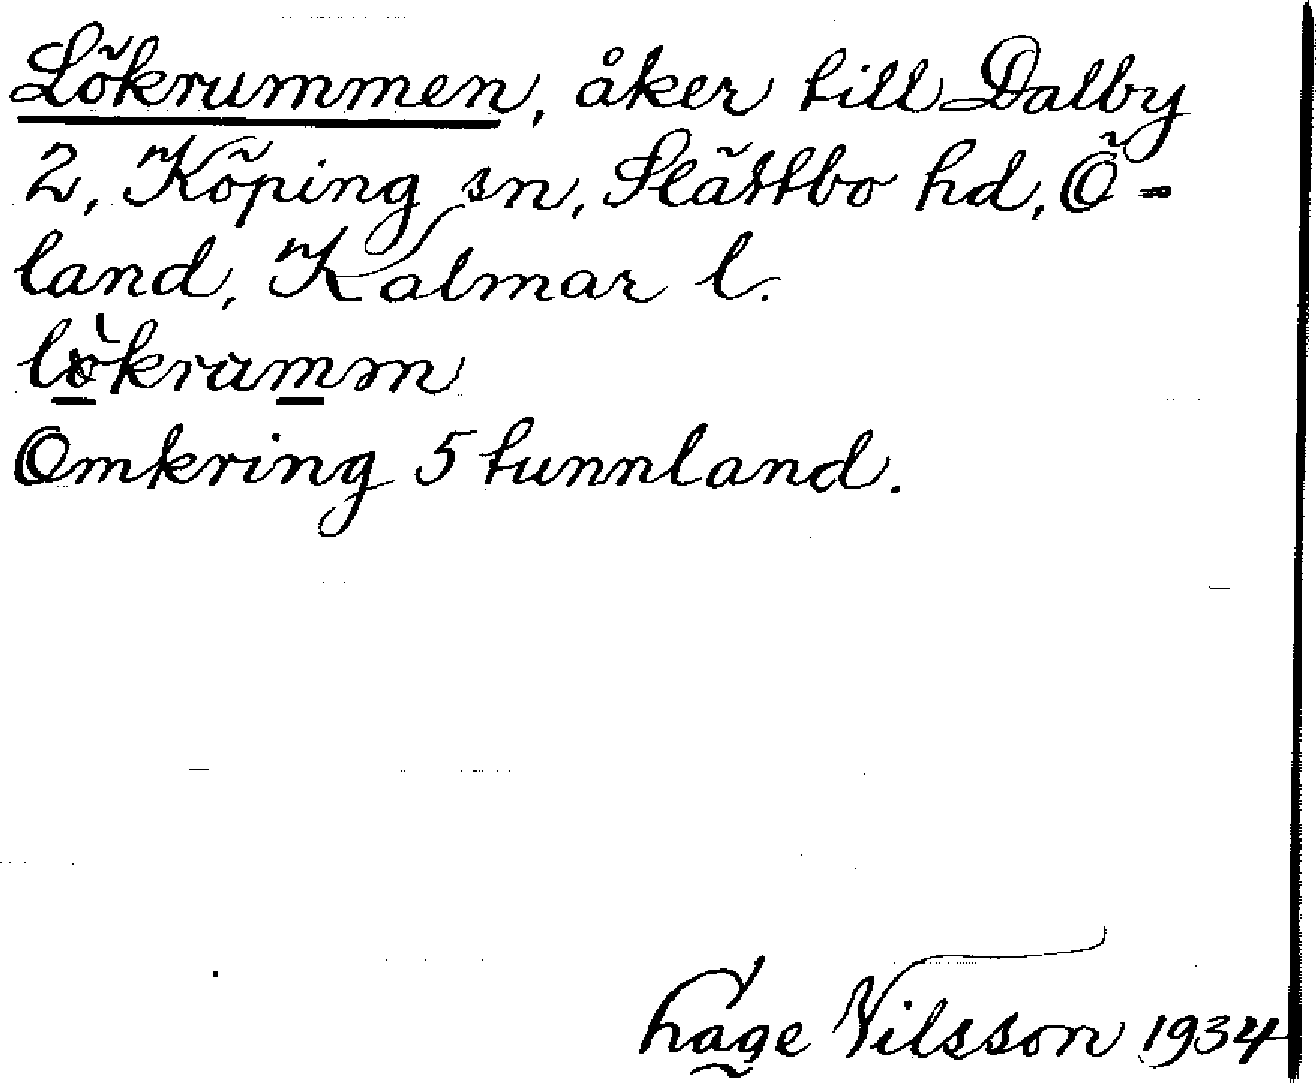 Lökrummen, åker till Dalby
2, Köping sn, Slättbo hd, Ö-
land, Kalmar l.
lö̀kramm
Omkring 5 tunnland.
Hage Nilsson 1934